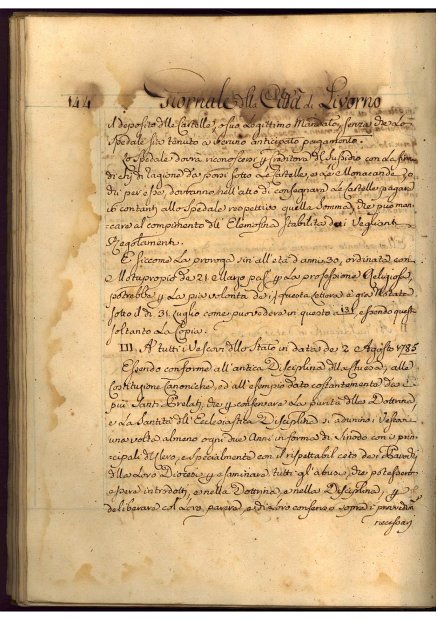 144 Giornale della Città di Livorno
il deposito delle Cartelle, o suo Legittimo Mandato, senza che Lo
Spedale sia tenuto a veruno anticipato pagamento.
Lo Spedale dovrà riconoscersi creditore del Sussidio con La
di chi di Ragione da porsi sotto Le Cartelle, e Le Monacande, o
chi per esse, dovranno nell'atto di consegnare Le Cartelle pagare
i contanti allo Spedale respettivo quella Somma, che può man-
care al compimento dell'Elemosina Stabilita dai Veglianti
Regolamenti.
E siccome La proroga sin all'età d'anni 30, ordinata con
Motuproprio de' 21 Marzo pass.° La professione Religiosa
potrebbe La pia volontà de
sotto il dì 31 Luglio come può vedersi in questo a 131, essendo questa
soltanto La Copia.
III. A tutti i Vescovi dello Stato in data de 2 Agosto 1785
Essendo conforme all'antica Disciplina della Chiesa, alle
Costituzioni Canoniche, ed all'esempio dato costantemente da i
più Santi Prelati, che conservare La purità della Dottrina,
e La Santità dell'Ecclesiastica Disciplina si adunino i Vescovi
una volta almeno ogni due Anni in forma di Sinodo con i prin-
cipali del Clero, e specialmente con il rispettabil ceto de Parrochi
della Loro Diocesi esaminare tutti gl'abusi, che potessero
essere introdotti, e nella Dottrina, e nella Disciplina,
deliberare col Loro parere, e di Loro consenso sopra i
necessarj